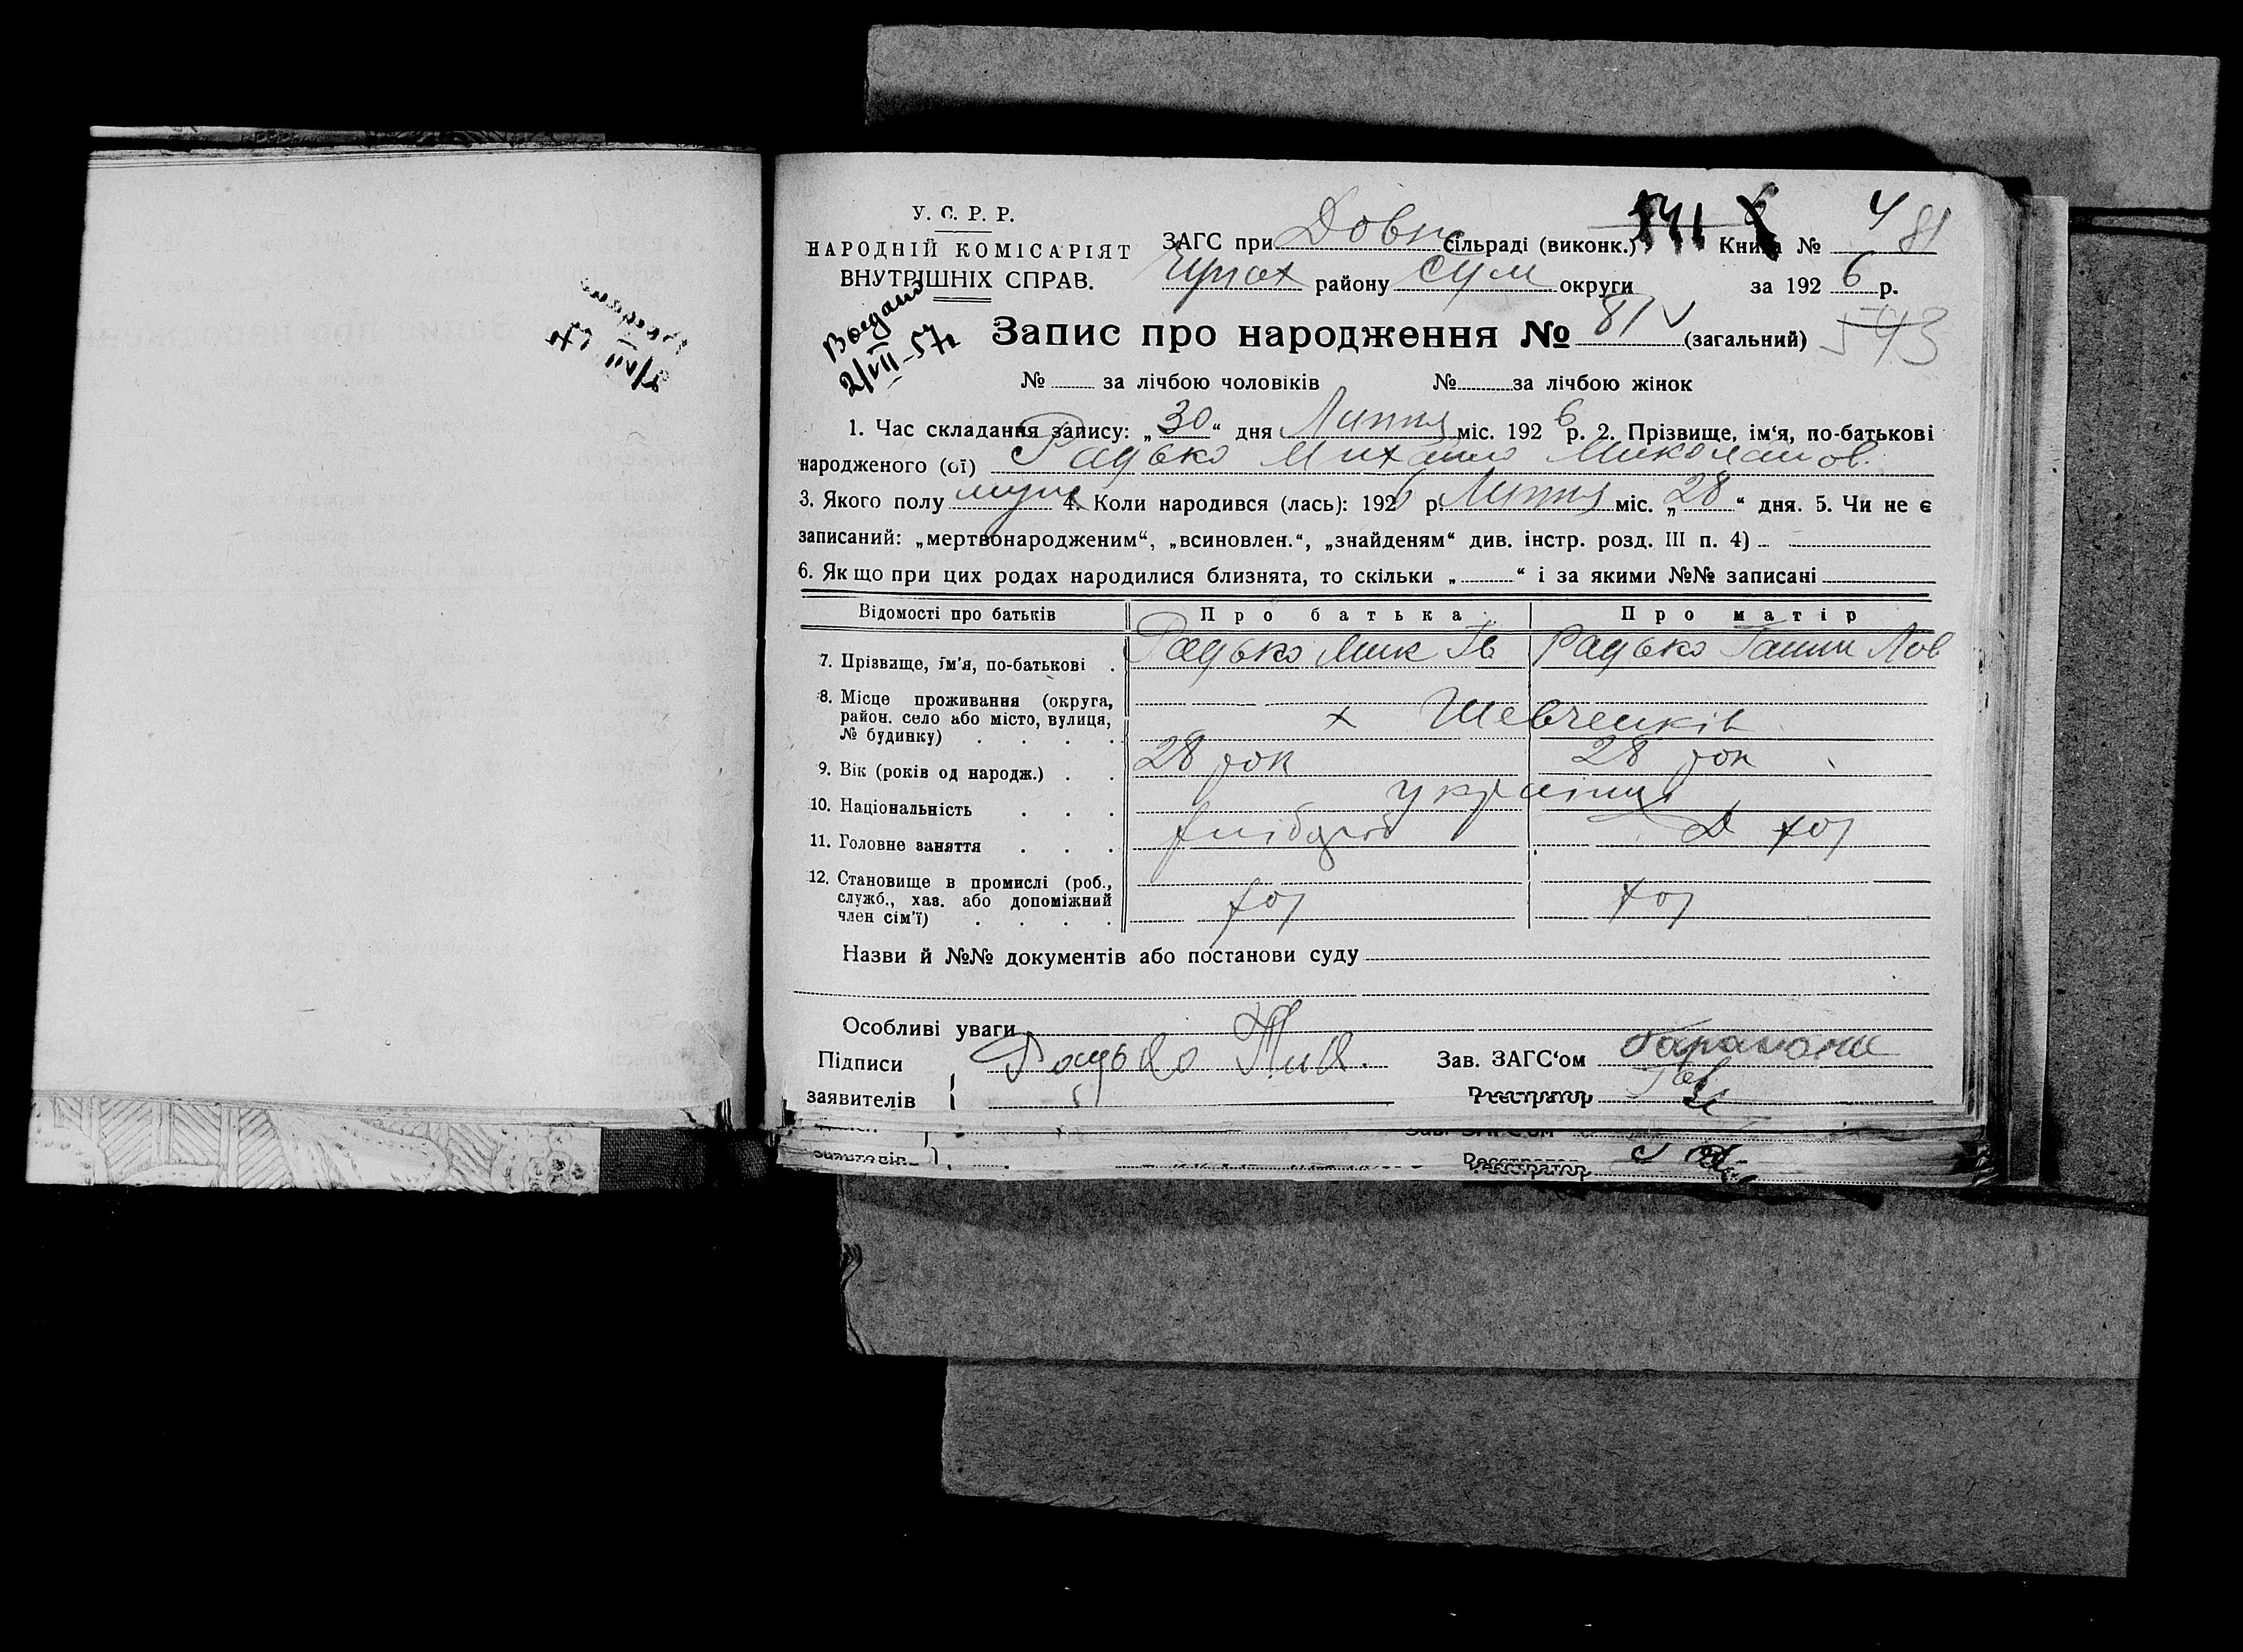 У. С. Р. Р.
НАРОДНІЙ КОМІСАРІЯТ
ВНУТРІШНІХ СПРАВ.
ЗАГС при Довж Сільраді (виконк.) Книга № 4 81
району Сум округи за 1926 р.
2/VII-57
Запис про народження № 81 (загальний) 543
№ за лічбою чоловіків № за лічбою жінок
1. Час складання запису: „30“ дня Липня міс. 1926 р. 2. Прізвище, ім‘я, по-батькові
народженого (ої) Радько Михайло Миколайов.
3. Якого полу муж 4. Коли народився (лась): 1926 р. Липня міс. „28“ дня. 5. Чи не є
записаний: „мертвонародженим“, „всиновлен.“, „знайденям“ див. інстр. розд. III п. 4)
6. Якщо при цих родах народилися близнята, то скільки „ “ і за якими №№ записані
Відомості про батьків Про батька Про матір
7. Прізвище, ім'я, по-батькові Радько Мик Ів Радько Ганни
8. Місце проживання (округа,
район. село або місто, вулиця,
№ будинку) х Шевченків
9. Вік (років од народж.) 28 рок 28 рок
10. Національність українці
11. Головне заняття хлібороб Д хоз
12. Становище в промислі (роб.,
служб., хаз. або допоміжний
член сім'ї) хоз хоз
Назви й №№ документів або постанови суду
Особливі уваги
Підписи Радько Зав. ЗАГС‘ом
заявителів Реєстратор
Реєстратор